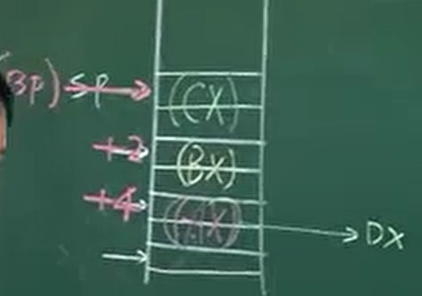 (BP) SP
(CX)
+2
(BX)
+4
(AX)
DX